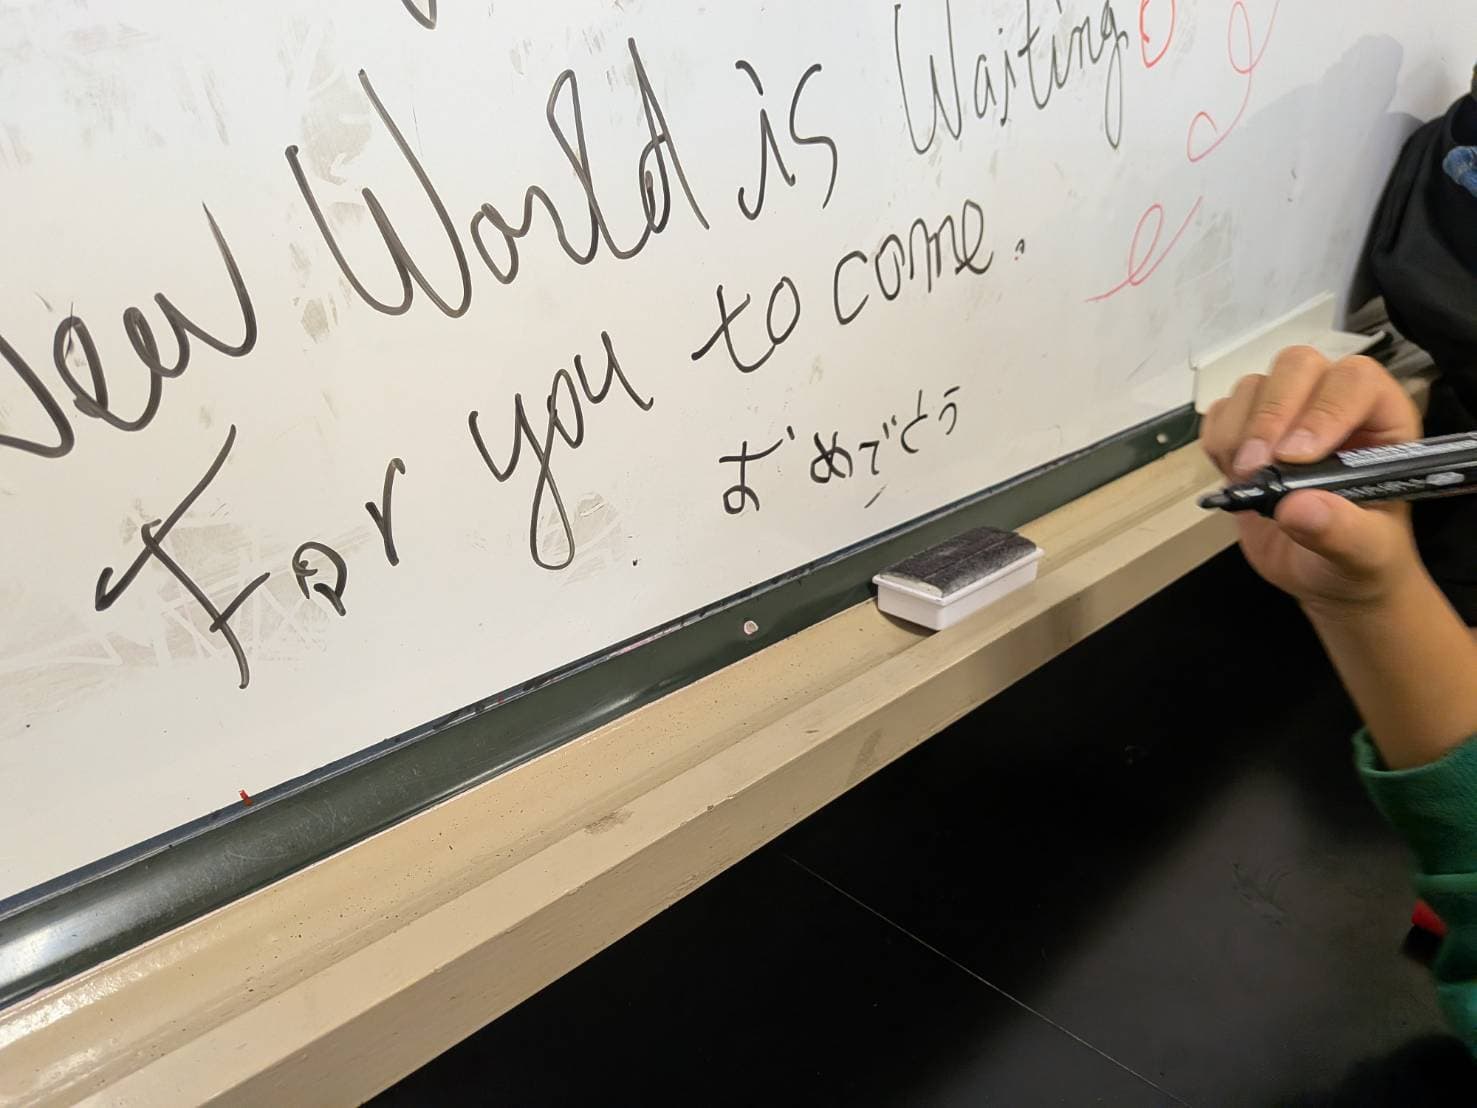 New World is Waiting
For you to come.
おめでとう